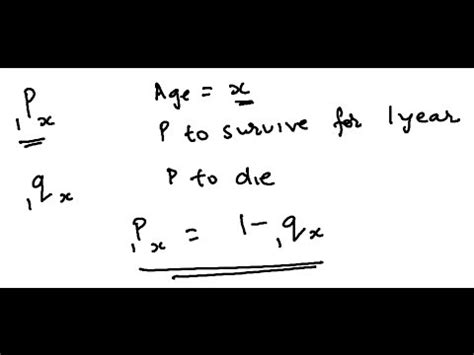 ₁Pₓ Age = x
P to survive for 1 year
₁qₓ P to die
₁Pₓ = 1 - ₁qₓ